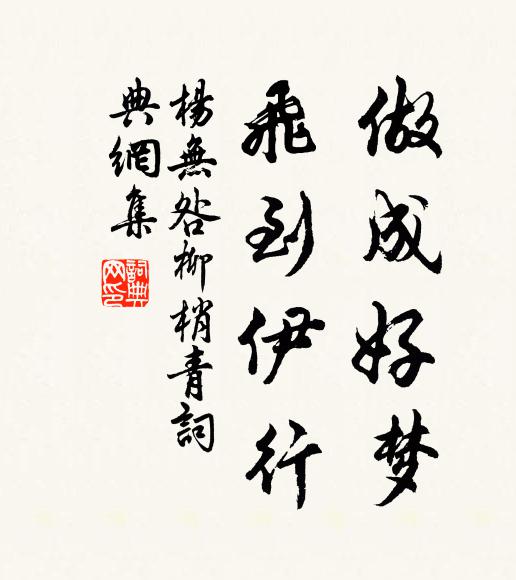 做成好梦
飛到伊行
楊無咎柳梢青詞
典網集
詞典網印